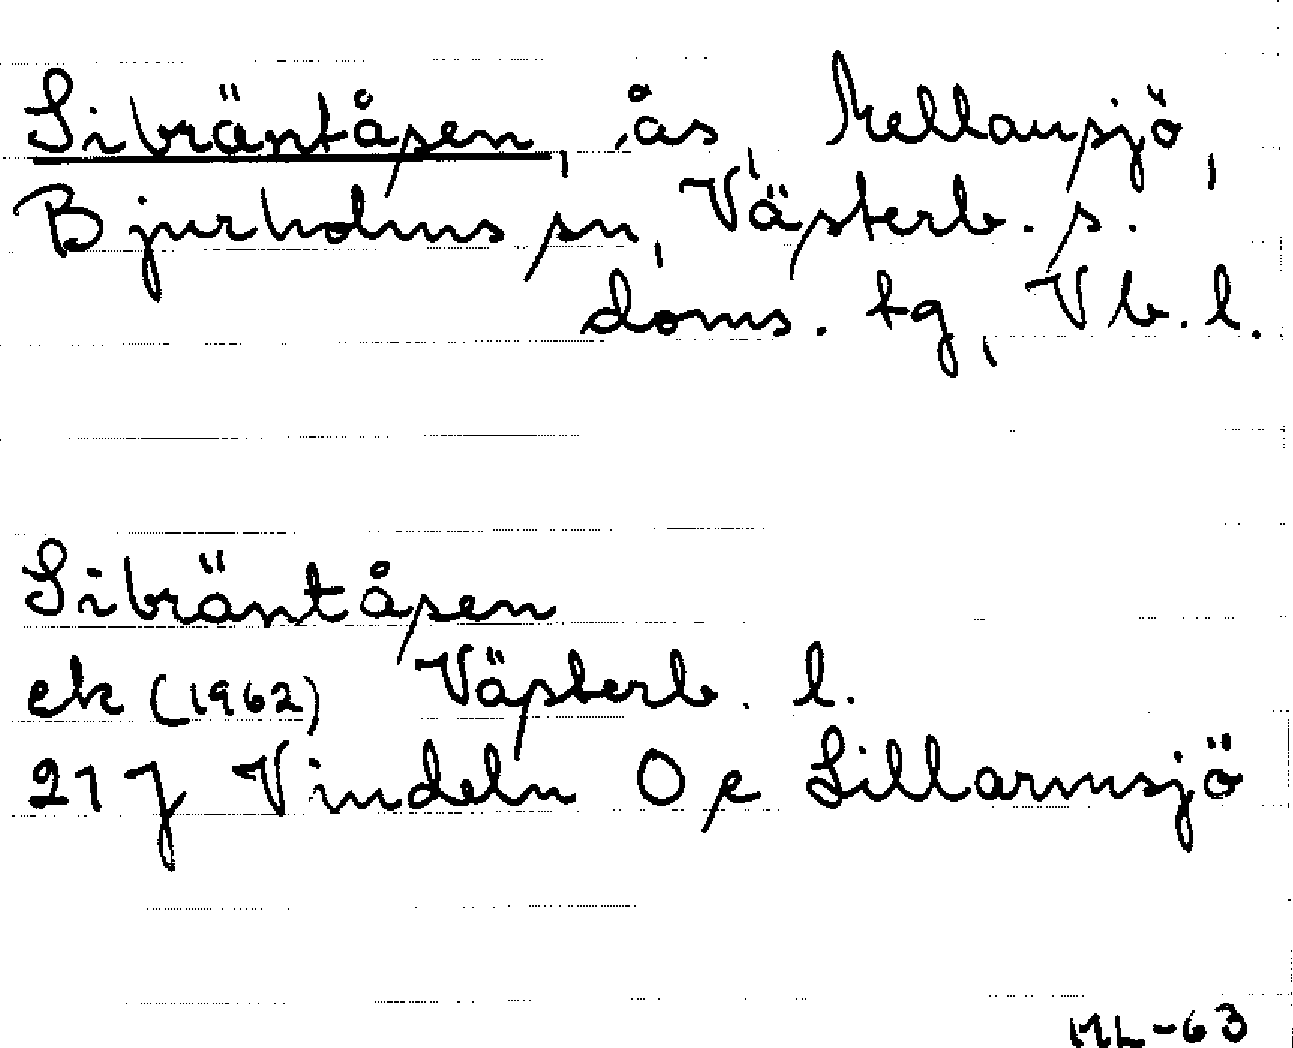 Sibräntåsen, ås, Mellansjö,
Bjurholms sn, Västerb. s.
doms. tg, Vb. l.
Sibräntåsen
ek (1962) Västerb. l.
21 J Vindeln Oe Lillarmsjö
ML-63